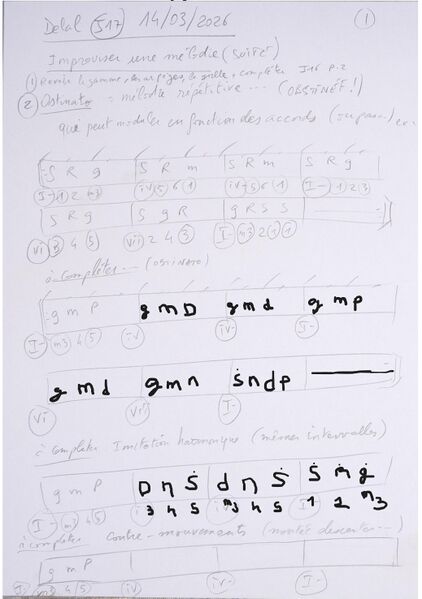 Delal J17 14/03/2026 (1)
Improviser une mélodie (suite)
(1) Revoir la gamme, les arpèges, la grille, compléter J16 P.2
(2) Ostinato = mélodie répétitive ... (OBSTINÉ !)
qui peut moduler en fonction des accords (ou pas...)
S R g | S R m | S R m | S R g
I- 1 2 m3 | iv 5 6 1 | iv- 5 6 1 | I- 1 2 3
S R g | S g R | g R S S
vi 3 4 5 | vii 2 4 3 | I- m3 2 1 1
à compléter ... (OSTINATO)
g m P | g m D | g m d | g m p
I- m3 4 5 | iv | iv- | I-
g m d | g m n | ṡ n d p
vi | vii | I-
à compléter Imitation harmonique (mêmes intervalles)
g m P | D n Ṡ | d n Ṡ | Ṡ ṁ ġ
I- m3 4 5 | 3 4 5 | m3 4 5 | 1 2 m3
à compléter Contre-mouvements (montée descente ...)
g m P
I- m3 4 5 | iv | iv- | I-